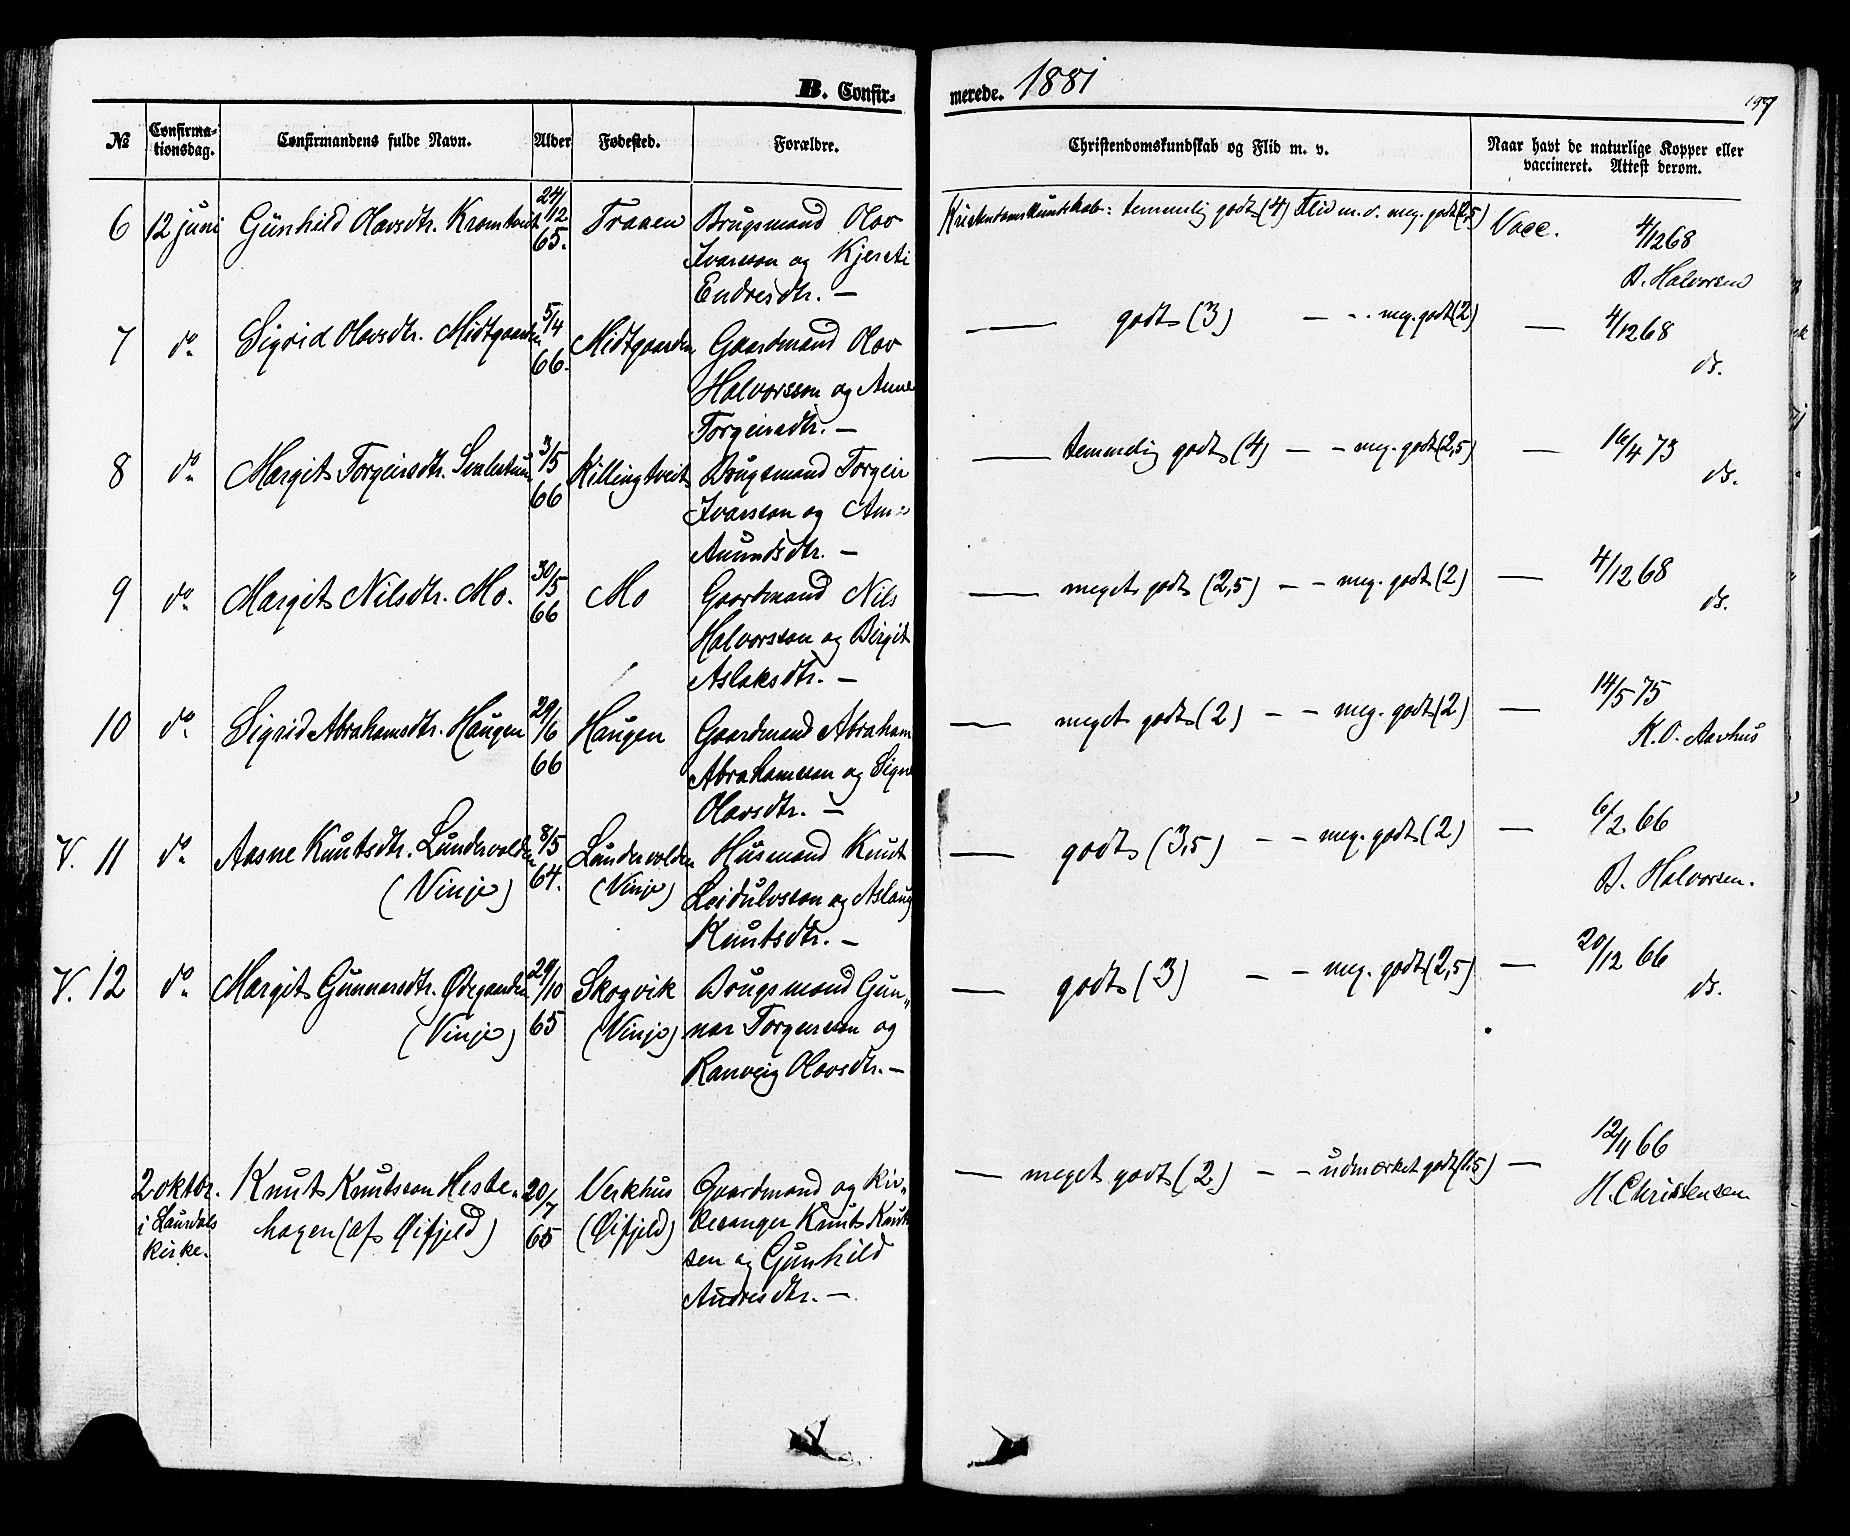 B. Confir- merede. 1881
№ Confirma-tionsdag. Confirmandens fulde Navn. Alder Fødested. Forældre. Christendomskundskab og Flid m. v. Naar havt de naturlige Kopper eller vaccineret. Attest derom.
6 12 juni Gunhild Olavsdtr. Kromtveit 24/12 65. Traaen Brugsmand Olav Kristendomskundskab: temmelig godt (4) Flid m. v. meg. godt (2,5) Vacc. 4/12 68
Ivarsson og Kjersti B. Halvorsen
Endresdtr. —
7 do Sigrid Olavsdtr. Midtgaarden 5/4 66. Midtgaarden Gaardmand Olav — godt (3) — - meg. godt (2) — 4/12 68
Halvorsson og Anne ds.
Torgeirsdtr. —
8 do Margit Torgeirsdtr. 3/5 66 Killingtveit Brugsmand Torgeir — temmelig godt (4) — - meg. godt (2,5) — 16/4 73
Ivarsson og ds.
Aanundsdtr. —
9 do Margit Nilsdtr. Mo. 30/5 66 Mo Gaardmand Nils — meget godt (2,5) — - meg. godt (2) — 4/12 68
Halvorsson og Birgit ds.
Aslaksdtr. —
10 do Sigrid Abrahamsdtr. Haugen 29/6 66 Haugen Gaardmand Abraham — meget godt (2) — - meg. godt (2) — 14/5 75
Abrahamsson og Signe K. O. Aarhus
Olavsdtr. —
V. 11 do Aasne Knutsdtr. Lundevolden 8/5 64. Lundevolden Husmand Knut — godt (3,5) — - meg. godt (2) — 6/2 66
(Vinje) (Vinje) Leidulvsson og Aslaug B. Halvorsen.
Knutsdtr. —
V. 12 do Margit Gunnarsdtr. Ødegarden 29/10 65 Skogvik Brugsmand Gun- — godt (3) — - meg. godt (2,5) — 20/12 66
(Vinje) (Vinje) nar Torgeirsson og ds.
Ranveig Olavsdtr. —
2 oktbr. Knut Knutsson Heste- 20/7 65 Verkhus Gaardmand og Kir- — meget godt (2) — - udmerket godt (1,5) — 12/4 66
i Laurdals hagen (af Øifjeld) (Øifjeld) kesanger Knut Knut- H. Christensen
kirke. sen og Gunhild
Andresdtr. —